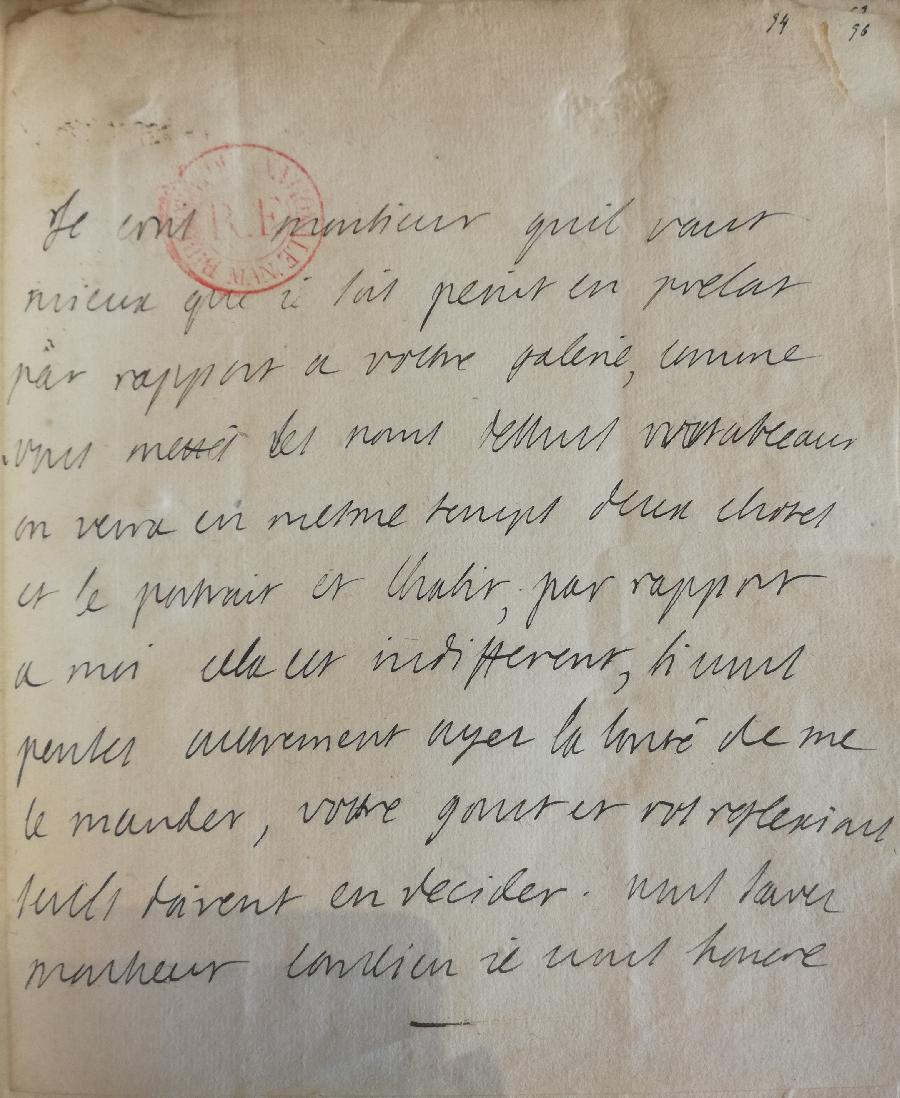 94 96
Je crois monsieur quil vaut
mieux que je sois peint en prelat
par rapport a vostre galerie, comme
vous mettés les noms dessus vos tableaux
on verra en mesme temps deux choses
et le portrait et lhabit, par rapport
a moi cela est indifferent, si vous
pensés autrement ayez la bonté de me
le mander, vostre goust et vos reflexions
seuls doivent en decider. vous savez
monsieur combien je vous honore